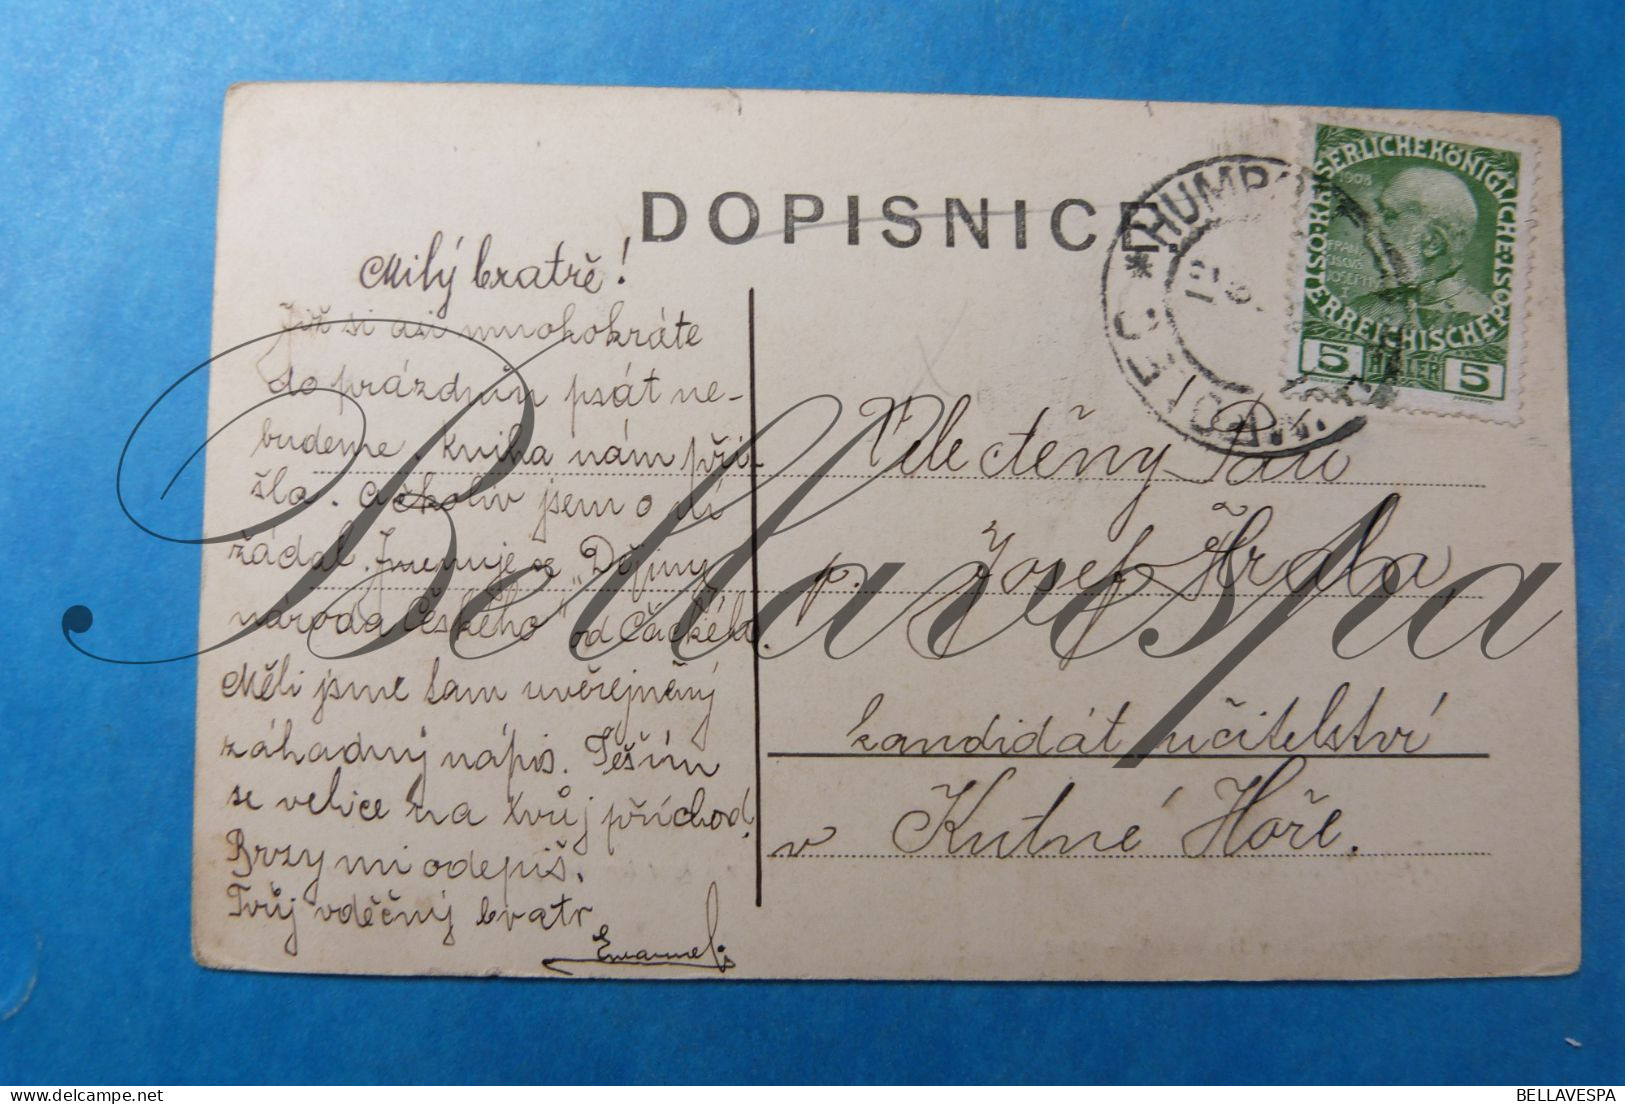 DOPISNICE.
Milý bratře!
Již si asi mnohokráte
do prázdnin psát ne-
budeme. Kniha nám při-
šla. Ačkoliv jsem o ní
žádal. Jmenuje se „Dějiny
národa Českého" od
Měli jsme tam uveřejněný
záhadný nápis. Těším
se velice na tvůj příchod.
Brzy mi odepiš.
Tvůj vděčný bratr
Emanuel
Velectěný Pán
p. Josef
kandidát učitelství
v Kutné Hoře.
KAISERLICHE KÖNIGLICHE ÖSTERREICHISCHE POST
1908
5 HELLER 5
HUMPOLEC
Bellavespa
BELLAVESPA